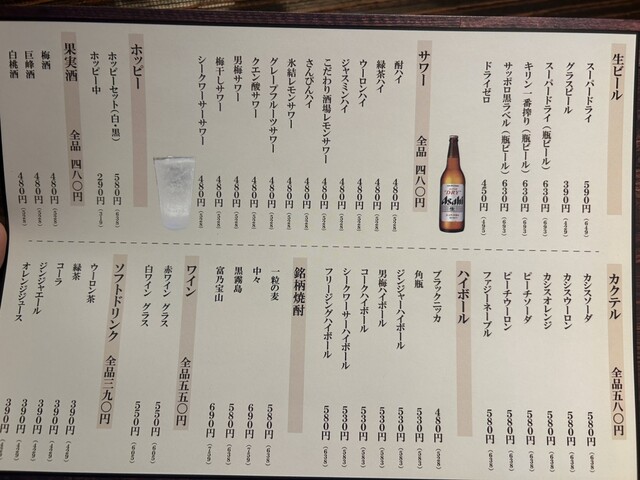 生ビール
スーパードライ 590円
グラスビール 390円
スーパードライ(瓶ビール) 630円
キリン一番搾り(瓶ビール) 630円
サッポロ黒ラベル(瓶ビール) 630円
ドライゼロ 450円
Asahi
サワー 全品 四八〇円
酎ハイ 480円
緑茶ハイ 480円
ウーロンハイ 480円
ジャスミンハイ 480円
こだわり酒場レモンサワー 480円
さんぴんハイ 480円
氷結レモンサワー 480円
グレープフルーツサワー 480円
クエン酸サワー 480円
男梅サワー 480円
梅干しサワー 480円
シークワーサーサワー 480円
ホッピー
ホッピーセット(白・黒) 580円
ホッピー中 290円
果実酒 全品 四八〇円
梅酒 480円
巨峰酒 480円
白桃酒 480円
カクテル 全品 五八〇円
カシスソーダ 580円
カシスウーロン 580円
カシスオレンジ 580円
ピーチソーダ 580円
ピーチウーロン 580円
ファジーネーブル 580円
ハイボール
ブラックニッカ 480円
角瓶 530円
ジンジャーハイボール 530円
男梅ハイボール 530円
コークハイボール 530円
シークワーサーハイボール 530円
フリージングハイボール 580円
銘柄焼酎
一粒の麦 580円
中々 690円
黒霧島 580円
富乃宝山 690円
ワイン 全品 五五〇円
赤ワイン グラス 550円
白ワイン グラス 550円
ソフトドリンク 全品三九〇円
ウーロン茶 390円
緑茶 390円
コーラ 390円
ジンジャエール 390円
オレンジジュース 390円